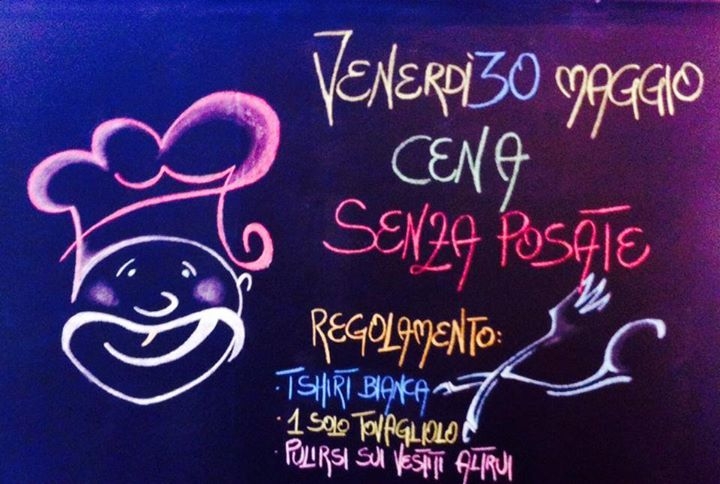 VENERDÌ 30 MAGGIO
CENA
SENZA POSATE
REGOLAMENTO:
· TSHIRT BIANCA
· 1 SOLO TOVAGLIOLO
· PULIRSI SUI VESTITI ALTRUI